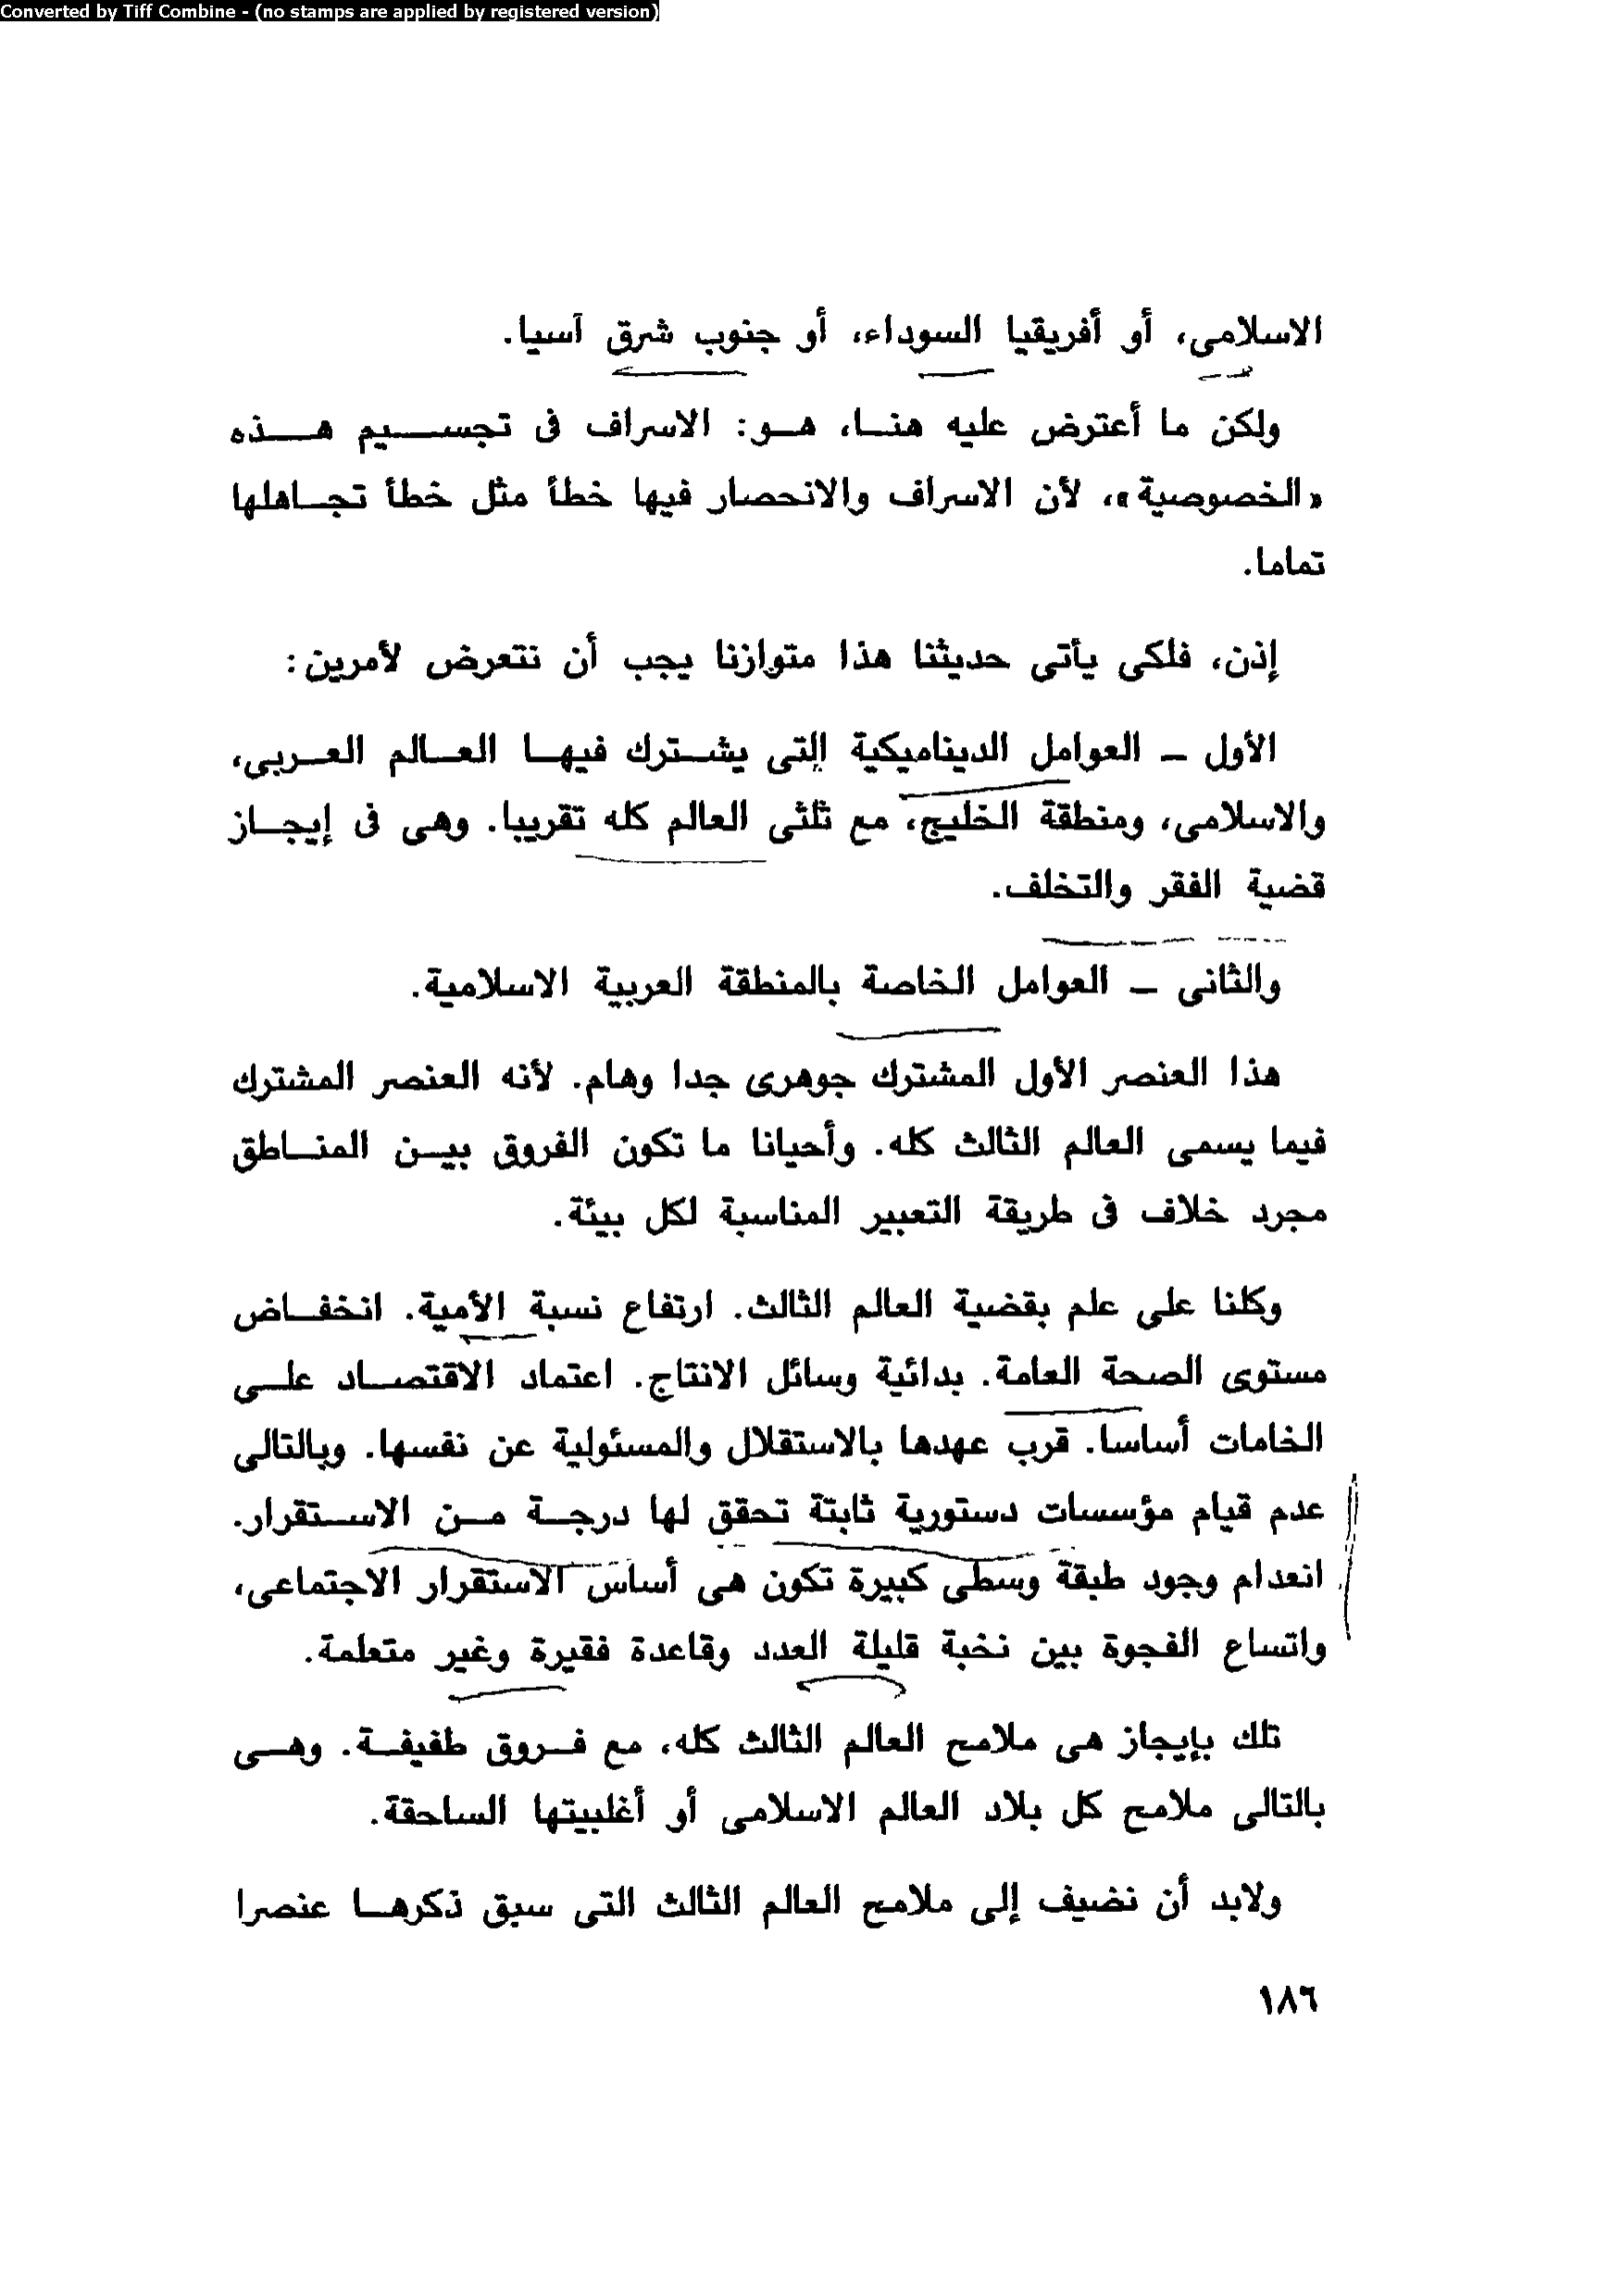 Converted by Tiff Combine - (no stamps are applied by registered version)
الاسلامى، أو أفريقيا السوداء، أو جنوب شرق آسيا.
ولكن ما أعترض عليه هنا، هو: الاسراف فى تجسيم هذه
«الخصوصية»، لأن الاسراف والانحصار فيها خطأ مثل خطأ تجاهلها
تماما.
إذن، فلكى يأتى حديثنا هذا متوازنا يجب أن نتعرض لأمرين:
الأول ــ العوامل الديناميكية التى يشترك فيها العالم العربى،
والاسلامى، ومنطقة الخليج، مع ثلثى العالم كله تقريبا. وهى فى إيجاز
قضية الفقر والتخلف.
والثانى ــ العوامل الخاصة بالمنطقة العربية الاسلامية.
هذا العنصر الأول المشترك جوهرى جدا وهام. لأنه العنصر المشترك
فيما يسمى العالم الثالث كله. وأحيانا ما تكون الفروق بين المناطق
مجرد خلاف فى طريقة التعبير المناسبة لكل بيئة.
وكلنا على علم بقضية العالم الثالث. ارتفاع نسبة الأمية. انخفاض
مستوى الصحة العامة. بدائية وسائل الانتاج. اعتماد الاقتصاد على
الخامات أساسا. قرب عهدها بالاستقلال والمسئولية عن نفسها. وبالتالى
عدم قيام مؤسسات دستورية ثابتة تحقق لها درجة من الاستقرار.
انعدام وجود طبقة وسطى كبيرة تكون هى أساس الاستقرار الاجتماعى،
واتساع الفجوة بين نخبة قليلة العدد وقاعدة فقيرة وغير متعلمة.
تلك بإيجاز هى ملامح العالم الثالث كله، مع فروق طفيفة. وهى
بالتالى ملامح كل بلاد العالم الاسلامى أو أغلبيتها الساحقة.
ولابد أن نضيف إلى ملامح العالم الثالث التى سبق ذكرها عنصرا
١٨٦